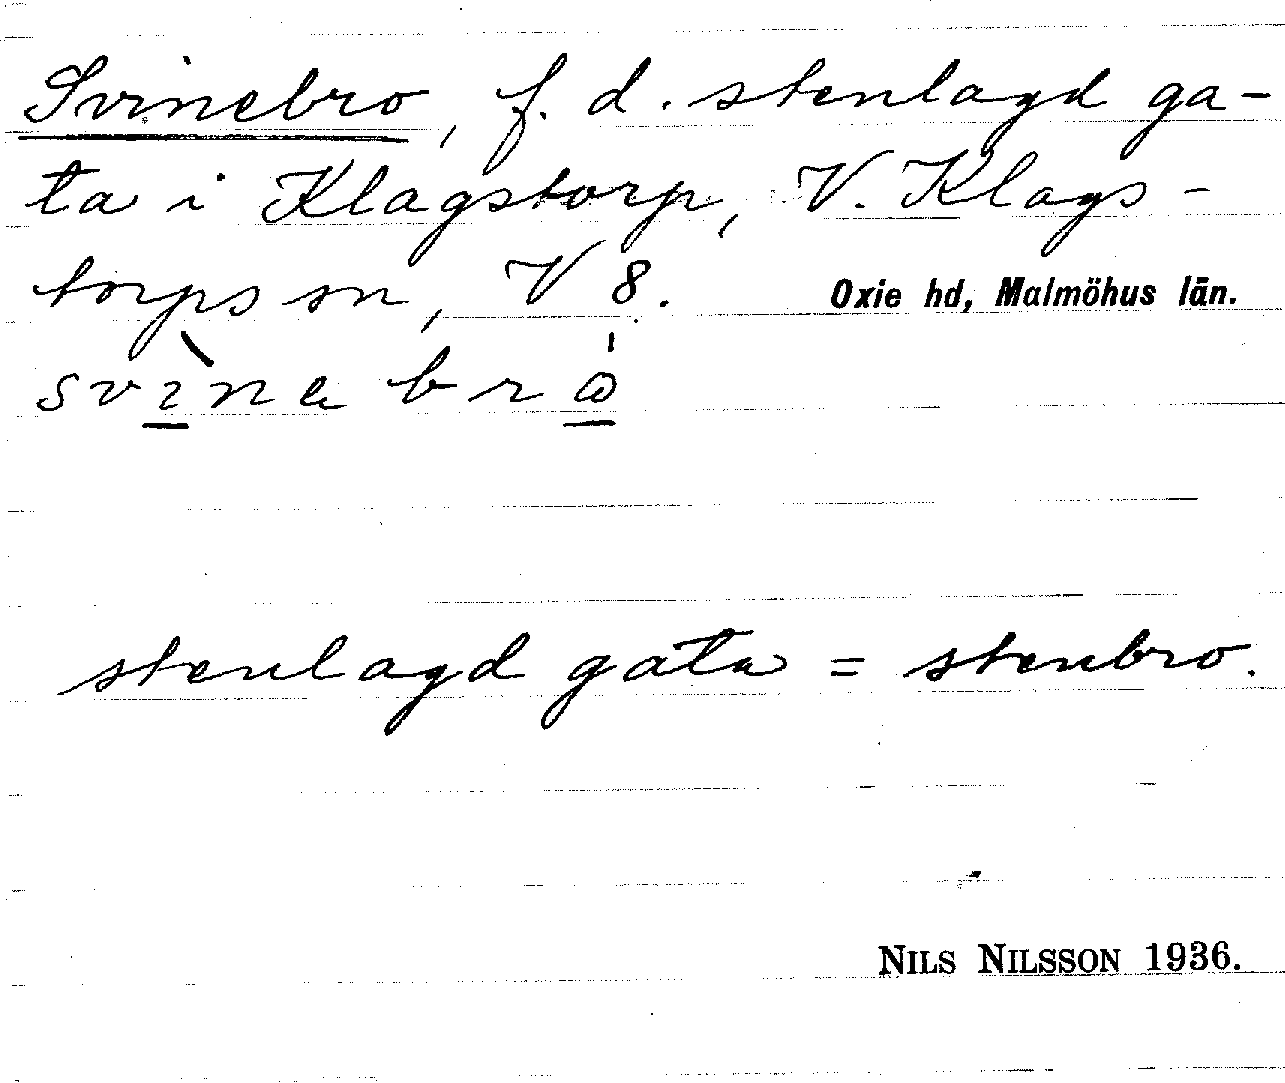 Svinebro, f. d. stenlagd ga-
ta i Klagstorp, V. Klags-
torps sn, V 8. Oxie hd, Malmöhus län.
stenlagd gata = stenbro.
NILS NILSSON 1936.